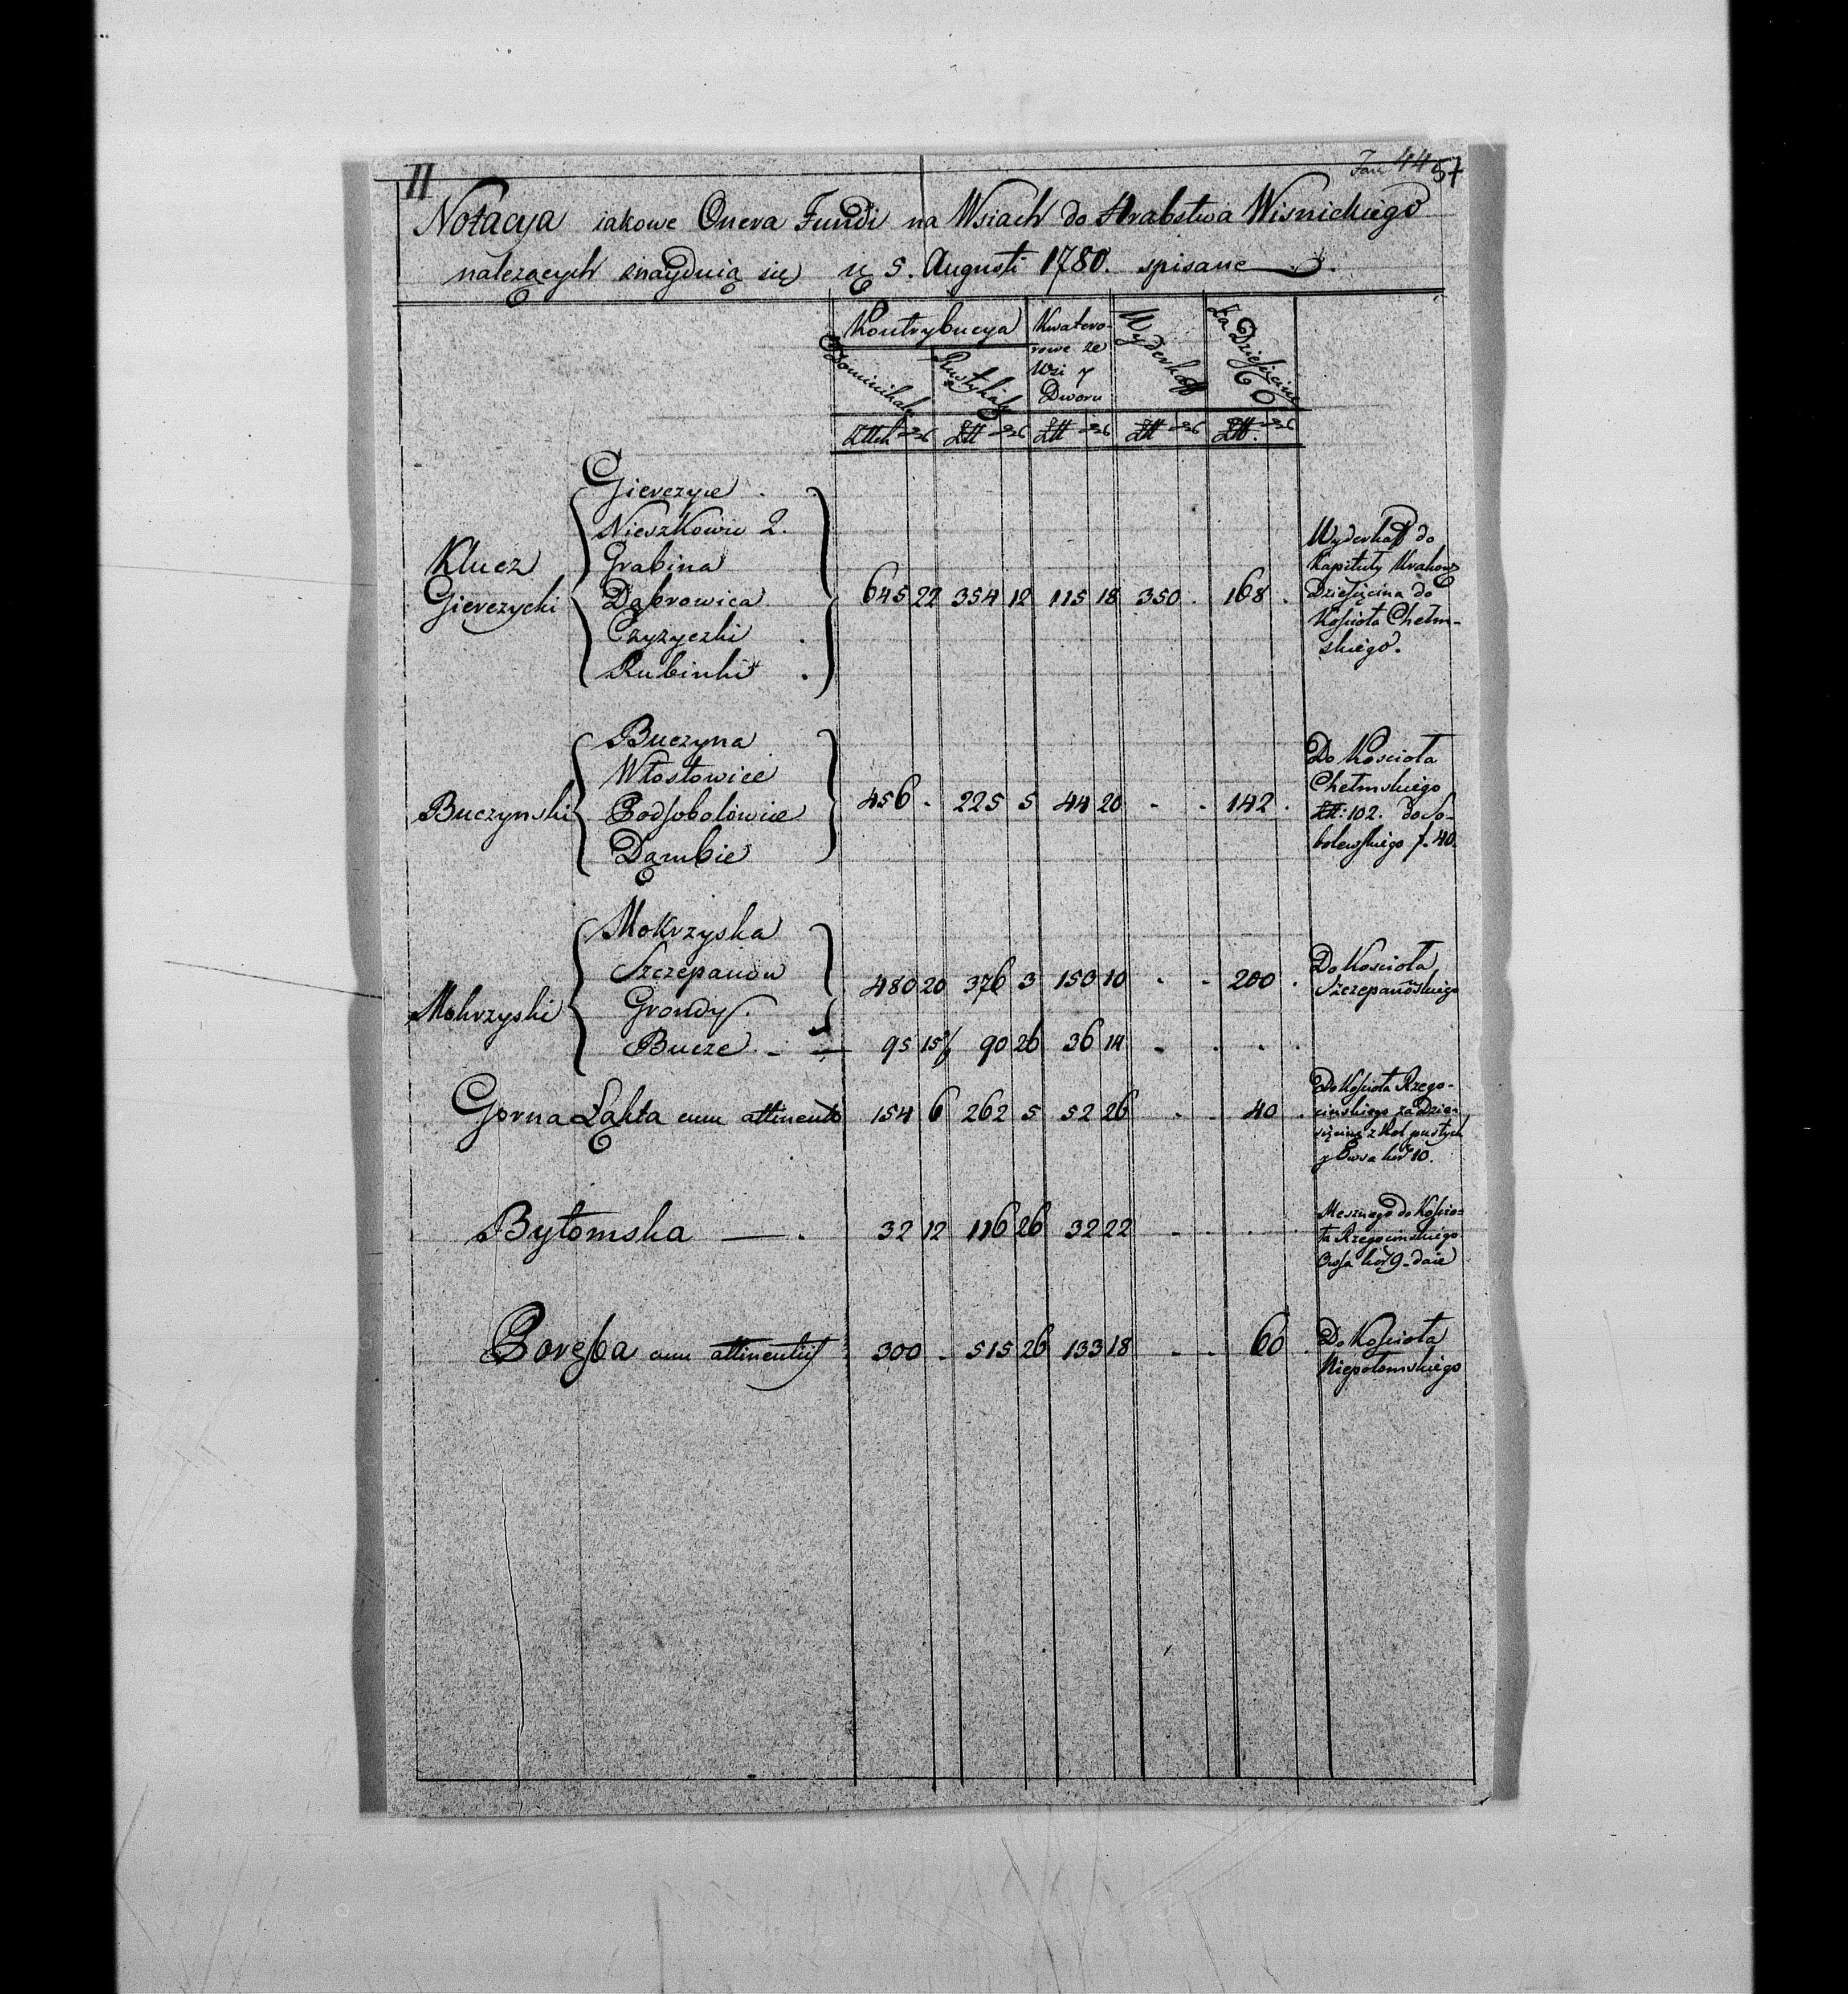 II
44 57
Notacya iakowe Onera Fundi na Wsiach do Hrabstwa Wisnickiego
należących znayduią się 5. Augusti 1780. spisane
Kontrybucya Kwatero- Wyderkaff Za Dziesięcinę
rowe ze
Wsi y
Dworu
Dominikalna Rustykalna
Gierczyce .
Nieszkowice 2.
Klucz Grabina
Gierczycki Dąbrowica
Czyzyczki .
Rubinki .
645 22 354 12 115 18 350 . 168 .
Wyderkaff do
Kapituły Krakow
Dziesięcina do
Kościoła Chełm-
skiego.
Buczyna
Włostowice
Buczynski Podsobolowice
Dąmbie
456 - 225 5 44 20 - - 142 .
Do Kościoła
Chełmskiego
102. do So-
bolewskiego f. 40.
Mokrzyska
Szczepanow
Mokrzyski Grondy.
480 20 376 3 150 10 - - 200 .
Do Kościoła
Szczepanowskiego
Bucze . - — 95 15 90 26 36 14 - . . .
Gorna Łąkta cum attinentiis 154 6 262 5 52 26 - - 40 .
Do Kościoła Rzego-
cinskiego za Dzie-
sięcinę z Rol pustych
y Owsa kor 10.
Bytomska — . 32 12 116 26 32 22 - . . .
Mesznego do Kościo-
ła Rzegocinskiego
Owsa kor 9 - daie
Poręba cum attinentiis 300 - 515 26 133 18 - - 60 .
Do Kościoła
Niepołomskiego